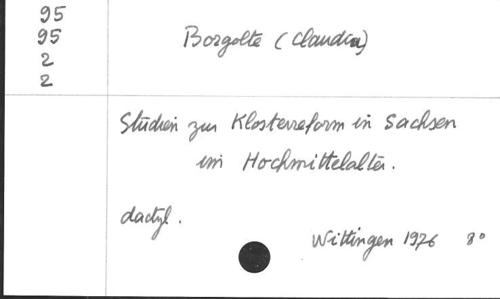 95
95
2
2
Borgolte (Claudia)
Studien zur Klosterreform in Sachsen
im Hochmittelalter.
dactyl.
Wittingen 1976 8°